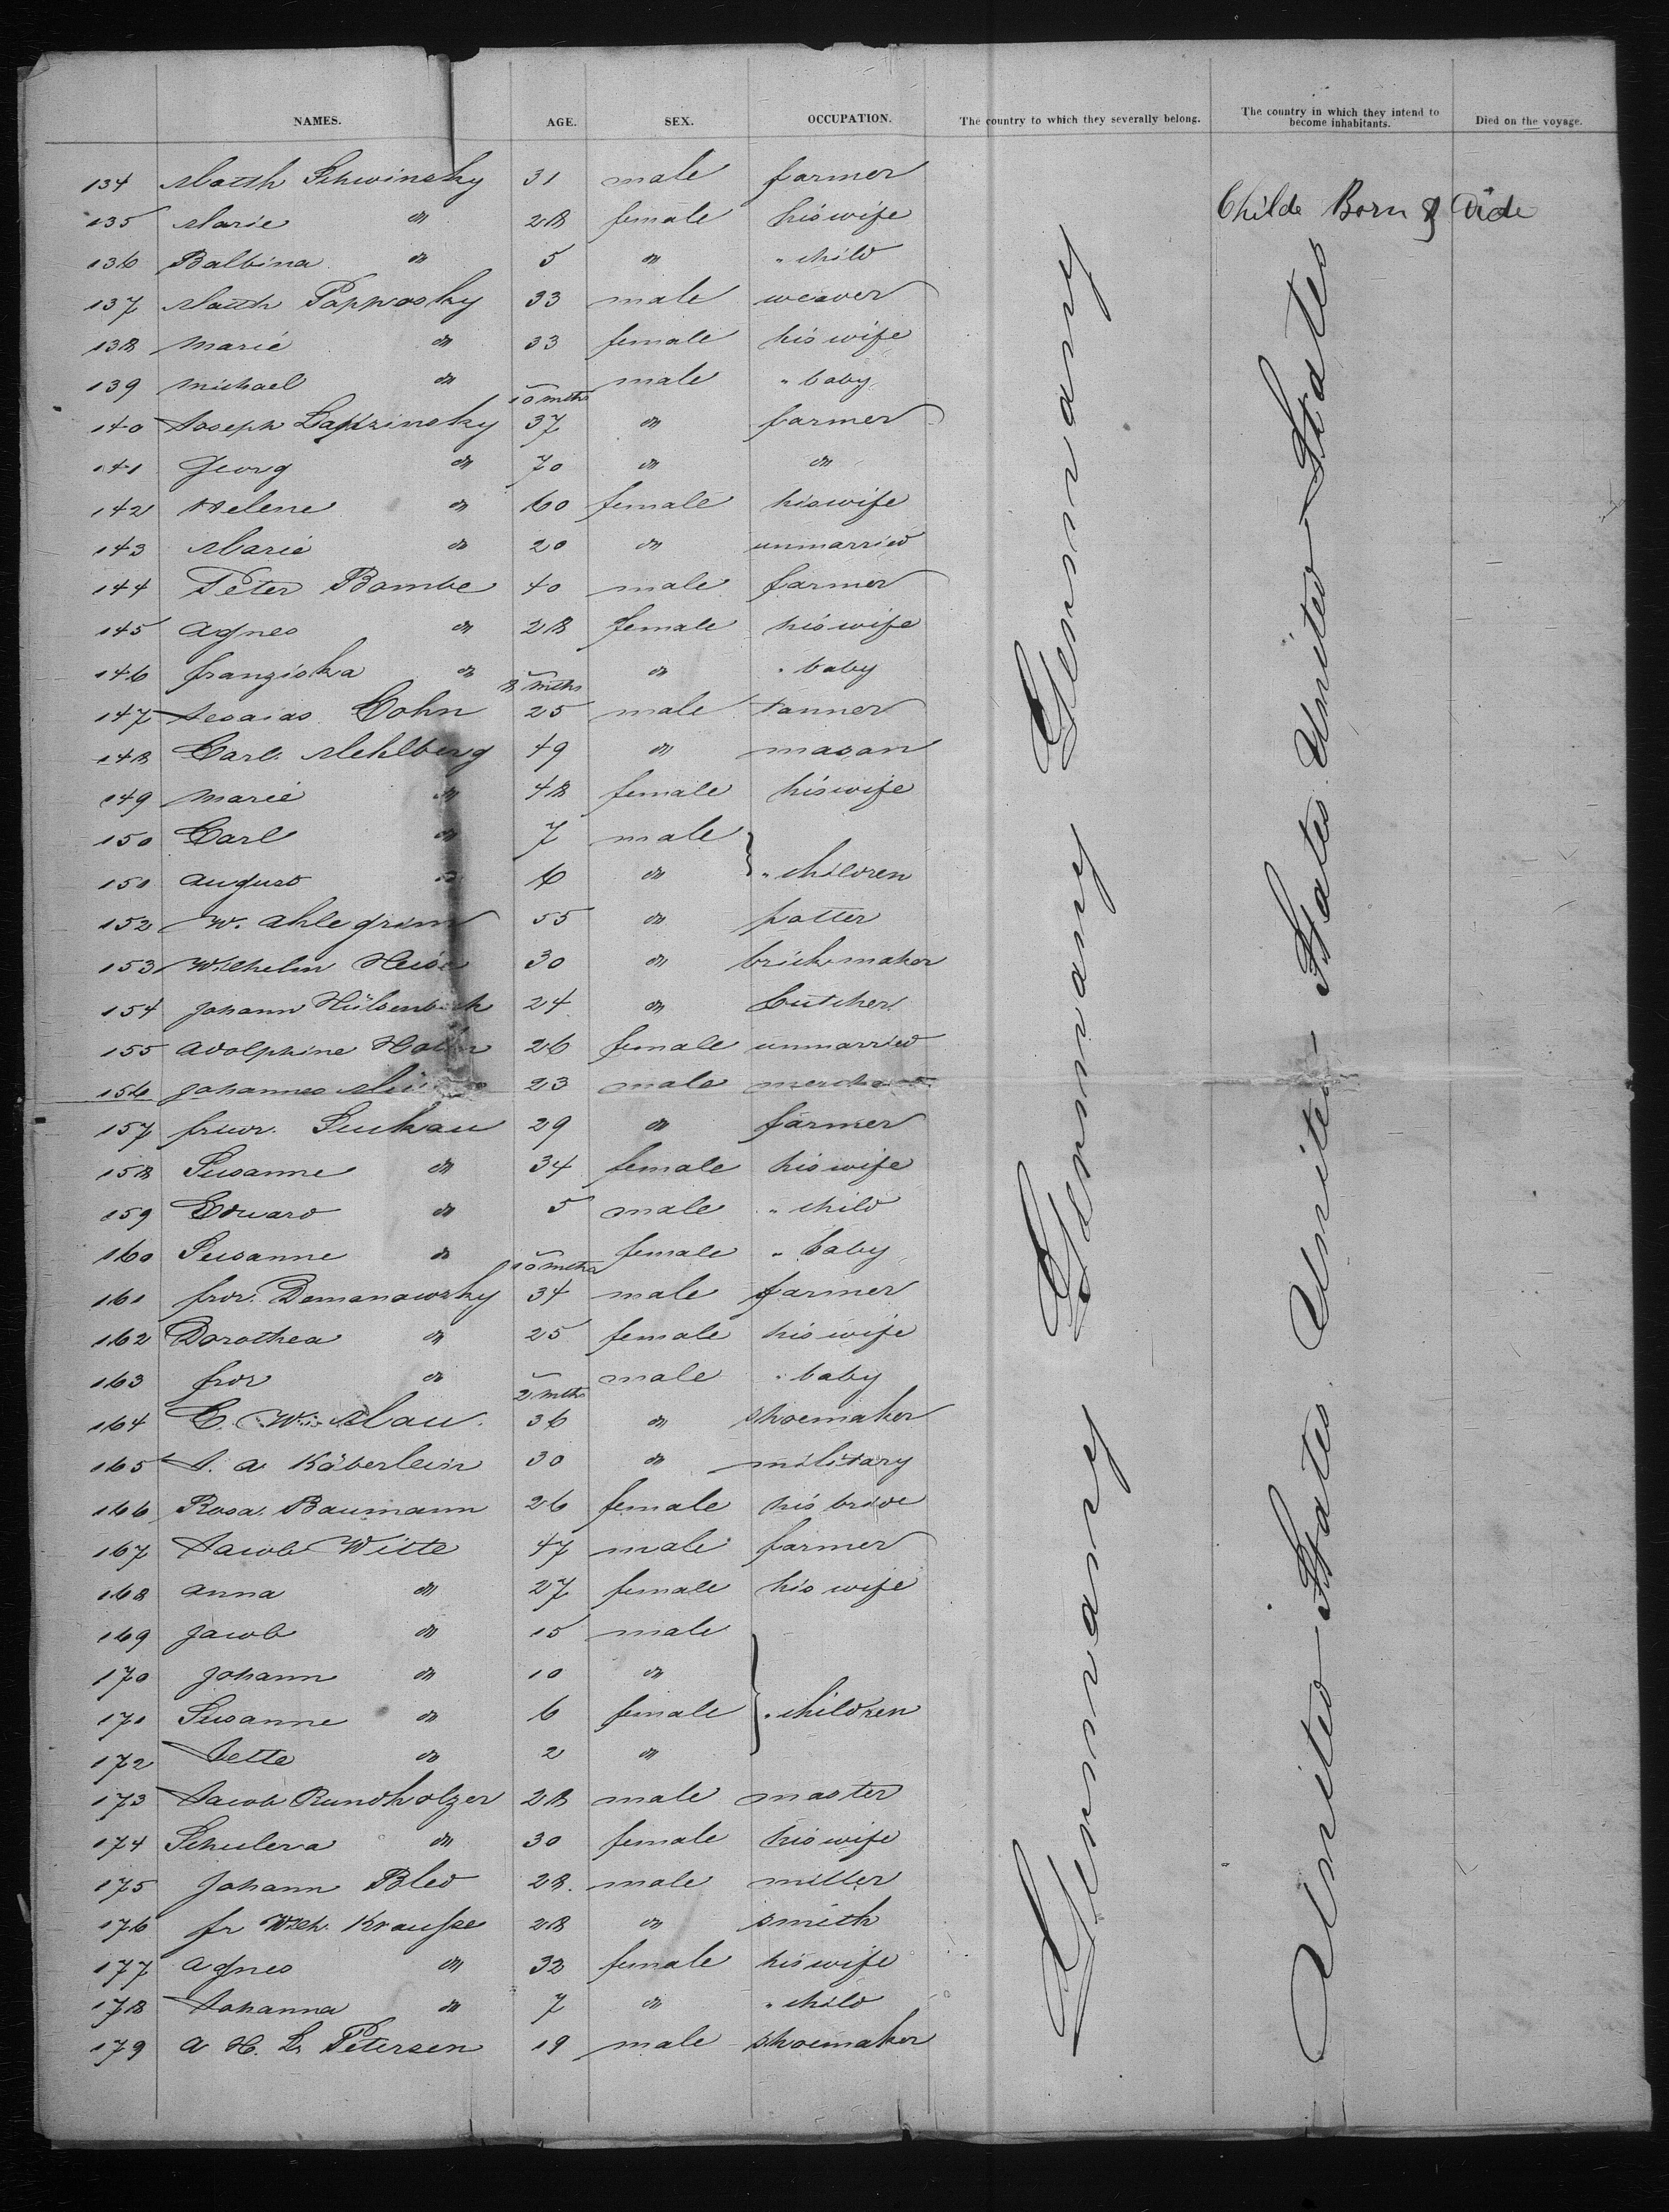 NAMES. AGE. SEX. OCCUPATION. The country to which they severally belong. The country in which they intend to become inhabitants. Died on the voyage.
134 Matth Schwinsky 31 male farmer
Childe Born & Dide
135 Marie do 28 female his wife
136 Balbina do 5 do " child
137 Matth Poppwosky 33 male weaver
138 Marie do 33 female his wife
139 Michael do 10 mths male " baby
140 Joseph 37 do farmer
141 Georg do 70 do do
142 Helene do 60 female his wife
143 Marie do 20 do unmarried
144 Peter Bombe 40 male farmer
145 Agnes do 28 female his wife
146 Franziska do 8 mths do " baby
147 Jesaias Cohn 25 male tanner
148 Carl Mehlberg 49 do mason
149 Marie do 48 female his wife
150 Carl do 7 male
151 August do 6 do " children
152 W. Ahlegrim 55 do potter
153 Wilhelm Heise 30 do brickmaker
154 Johann Hülsenbeck 24 do butcher
155 Adolphine 26 female unmarried
156 Johannes 23 male merchant
157 Friedr. Luckau 29 do farmer
158 Susanne do 34 female his wife
159 Eduard do 5 male " child
160 Susanne do 10 mths female " baby
161 Frdr. Domanowsky 34 male farmer
162 Dorothea do 25 female his wife
163 Frdr do 2 mths male " baby
164 C. W. Mau 36 do shoemaker
165 J. A Köberlein 30 do military
166 Rosa Baumann 26 female his bride
167 Jacob Witte 47 male farmer
168 Anna do 27 female his wife
169 Jacob do 15 male
170 Johann do 10 do
171 Susanne do 6 female " children
172 Jette do 2 do
173 Jacob Rundholzer 28 male master
174 do 30 female his wife
175 Johann Bled 28. male miller
176 Fr Wilh. Krausse 28 do smith
177 Agnes do 32 female his wife
178 Johanna do 7 do " child
179 A H. L. Petersen 19 male shoemaker
Germany Germany Germany Germany
United States United States United States